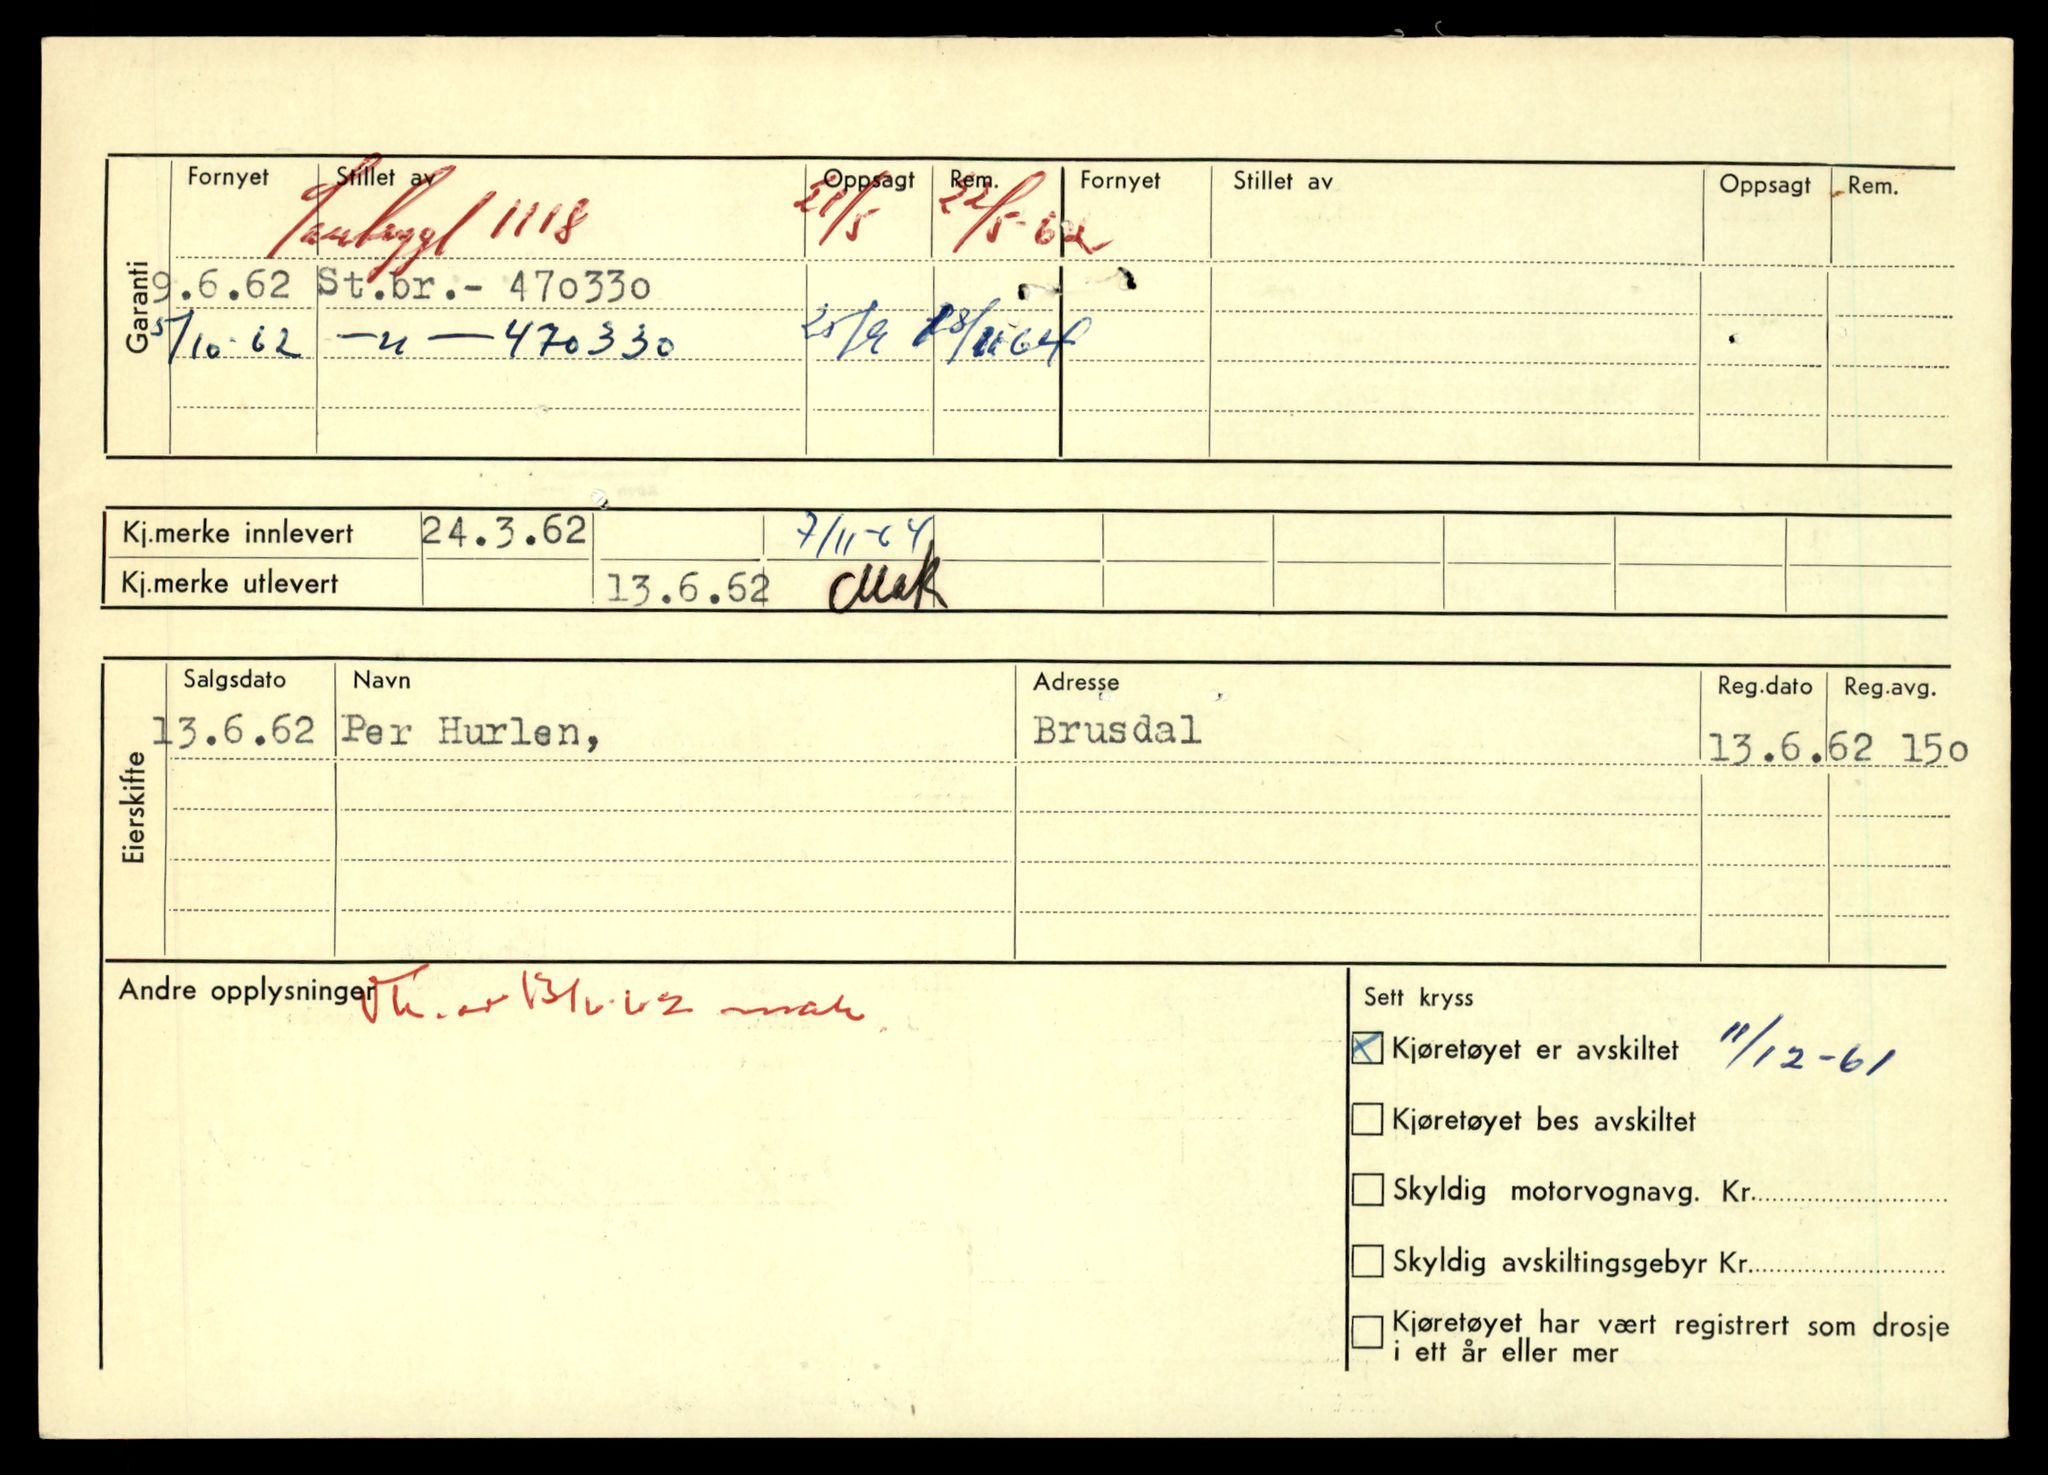 Garanti
Fornyet Stillet av Oppsagt Rem. Fornyet Stillet av Oppsagt Rem.
1118 21/5 22/5-62
9.6.62 St.br.- 470330
5/10-62 —"— 470330 25/9 64
Kj.merke innlevert 24.3.62 7/11-64
Kj.merke utlevert 13.6.62
Eierskifte
Salgsdato Navn Adresse Reg.dato Reg.avg.
13.6.62 Per Hurlen, Brusdal 13.6.62 150
Andre opplysninger
Sett kryss
Kjøretøyet er avskiltet 11/12-61
Kjøretøyet bes avskiltet
Skyldig motorvognavg. Kr.
Skyldig avskiltingsgebyr Kr.
Kjøretøyet har vært registrert som drosje
i ett år eller mer